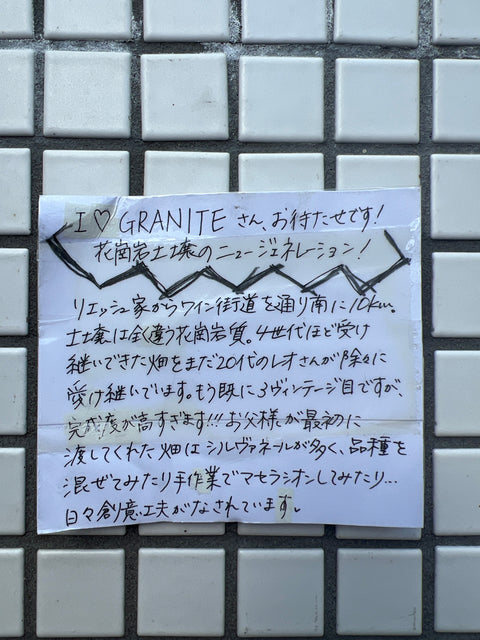 I♡GRANITE さん、お待たせです!
花崗岩土壌のニュージェネレーション!
リエッシュ家からワイン街道を通り南に10km。
土壌は全く違う花崗岩質。4世代ほど受け
継いできた畑をまだ20代のレオさんが徐々に
受け継いでいます。もう既に3ヴィンテージ目ですが、
完成度が高すぎます!!! お父様が最初に
渡してくれた畑はシルヴァネールが多く、品種を
混ぜてみたり手作業でマセラシオンしてみたり...
日々創意工夫がなされています。